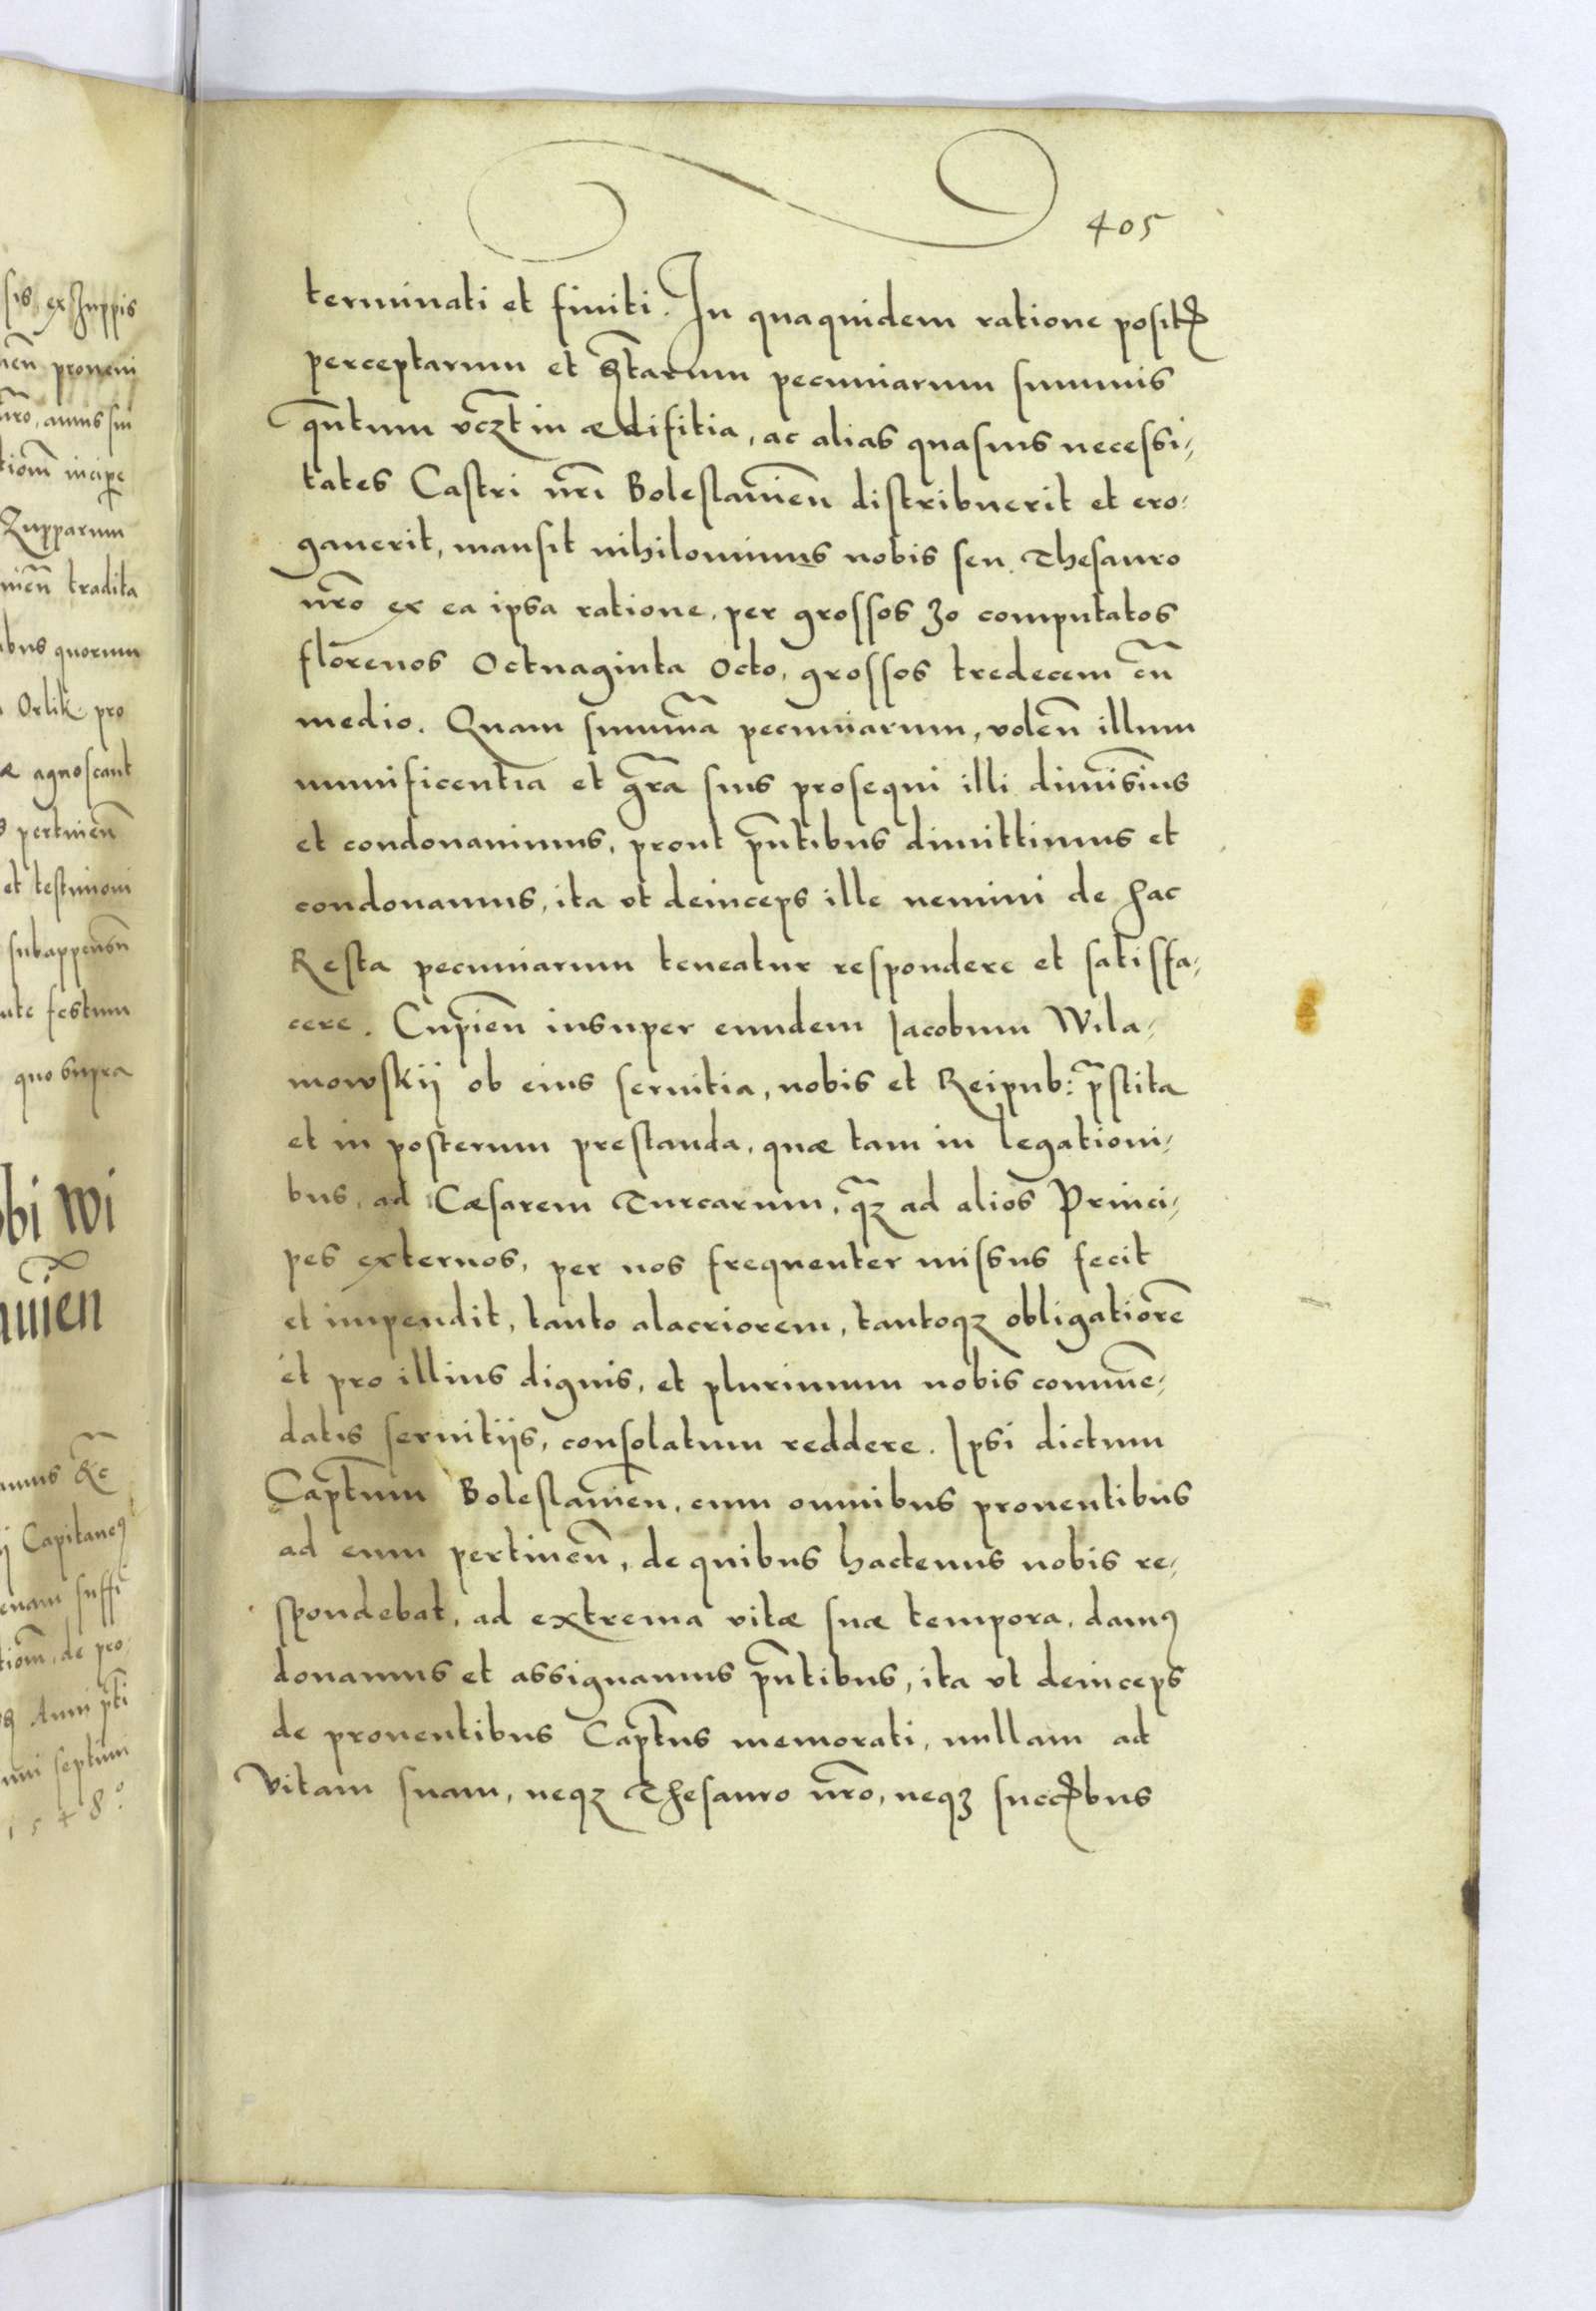 405
terminati et finiti. In quaquidem ratione posit
perceptarum et pecuniarum summis
qn̄tum vcꝫt in ædifitia, ac alias quasuis necessi,
tates Castri nr̄i Boleslauien̄ distribuerit et ero,
gauerit, mansit nihilominus nobis seu Thesauro
nr̄o ex ea ipsa ratione, per grossos 30 computatos
florenos Octuaginta Octo, grossos tredecem cū
medio. Quam summā pecuniarum, volen̄ illum
munificentia et gr̄a sius prosequi illi dimisim̄us
et condonauimus, prout pn̄tibus dimittimus et
condonamus, ita vt deinceps ille nemini de hac
Resta pecuniarum teneatur respondere et satisfa,
cere. Cupien̄ insuper eundem Jacobum Wila,
mowskij ob eius seruitia, nobis et Reipub: pr̄stita
et in posterum prestanda, quæ tam in legationi,
bus, ad Cæsarem Turcarum, qꝫ̄ ad alios Princi,
pes externos, per nos frequenter missus fecit
et impendit, tanto alacriorem, tantoqꝫ obligatiorē
et pro illius dignis, et plurimum nobis commē,
datis seruitijs, consolatum reddere. Ipsi dictum
Captūm Boleslauien̄, cum omnibus prouentibus
ad eum pertinen̄, de quibus hactenus nobis re,
spondebat, ad extrema vitæ suæ tempora, damꝰ
donamus et assignamus pn̄tibus, ita vt deinceps
de prouentibus Captūs memorati, nullam ad
vitam suam, neqꝫ Thesauro nr̄o, neqꝫ
sis ex Zuppis
proueni
nr̄o, annis
incipe
Zupparum
tradita
quorum
Orlik pro
agnoscant
pertinen̄
et testimoni
subappensn̄
festum
quo supra
obi Wi
auien
&c̄
Capitaneꝰ
suffi
de pro,
Anni
septimi
1548.